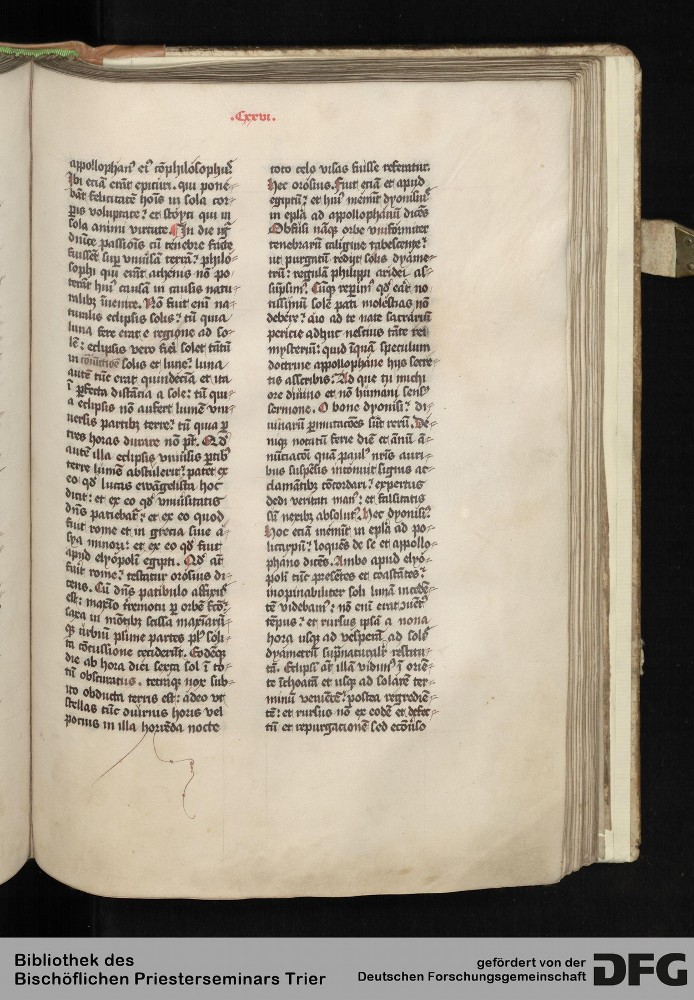 .Cxxvi.
appollophani᷒ ei᷒ cōphilosophus᷒
Ibi eciā erāt epicuri. qui pone-
bāt felicitatē hoīs in sola cor-
pīs voluptate? et stoyci qui in
sola animi virtute. In die igr̄
dn̄ice passiōis cū tenebre facte
fuissēt sup vniūsā terrā? philo-
sophi qui erāt athenis nō po-
terāt hui᷒ causā in causis natu-
ralibꝫ īuenire. Nō fuit enī na-
turalis eclipsis solis? tū quia
luna tūc erat e regione ad so-
lē: eclipsis vero fieri solet tātū
in solis et lune. luna
autē tūc erat quindecīa et ita
ī pfecta distācia a sole: tū qui-
a eclipsis nō aufert lumē vni-
uersis partibꝫ terre? tū quia p
tres horas durare nō pt̄. Qd̄
autē illa eclipsis vniūsis ptibꝫ
terre lumē abstulerit? patet ex
eo qd̄ lucas ewāgelista hoc
dicit: et ex eo qd̄ vniūsitatis
dn̄s patiebat᷒? et ex eo quod
fuit rome et in grecia siue ā-
sya minori: et ex eo qd̄ fuit
apud elyōpolī egipti. Qd̄ aūt
fuit rome? testatur orosius di-
cens. Cū dn̄s patibulo affixus
est: maxīo t̄remotu p orbē fc̄o?
saxa in mōtibꝫ scissa maxiarū-
qꝫ urbiū plūme partes pl᷒ soli-
ta cōcussione ceciderūt. Eodēqꝫ
die ab hora diei sexta sol ī to-
tū obscuratus. tetraqꝫ nox sub-
ito obducta terris est: adeo vt
stellas tūc diurnis horis vel
pocius in illa horrēda nocte
toto celo visas fuisse referatur.
Hec orosius. Fuit eciā et apud
egiptū? et hui᷒ meīnit dyonisiu᷒
in epl̄a ad appollophaniū dicēs
Obfusi nāqꝫ orbe vniformiter
tenebrarū caligine tabescente?
ut purgatū redijt solis dyame-
trū: regulā philippi aridei as-
sūpsim᷒. Cūqꝫ repim᷒ qd̄ erat no-
tissimū solē pati molestias nō
debere? aio ad te nate sacrariū
pericie adhuc nescius tāte rei
mysteriū: quid īquā speculum
doctrine appollophane hijs secre-
tis asscribis? Ad que tu michi
ore diuino et nō humani sens᷒
sermone. O bone dyonisi? di-
uinarū pmutacōes sūt rerū. De-
niqꝫ notatū ferie diē et anū ā-
nūciacōi quā paul᷒ nr̄is auri-
bus suspēsis intonuit signis ac-
clamātibꝫ cōcordari? expertus
dedi veritati man᷒? et falsitatis
sū nexibꝫ absolut᷒. Hec dyonisi᷒
Hoc eciā meīnit in epl̄a ad po-
licarpū? loquēs de se et appollo-
phano dicēs. Ambo apud elyō-
polī tūc presētes et coastātes?
inopinabiliter soli lunā incidē-
tē videbam᷒? nō enī erat ꝯuēt᷒
tēpus? et rursus ipsā a nona
hora usqꝫ ad vesperā ad solē
dyametrū supnaturalr̄ restitu-
tā. Eclipsī aūt illā vidim᷒ ī oriē-
te īchoatā et usqꝫ ad solarē ter-
minū venientē? postea regrediē-
tē: et rursus nō ex eodē et defec-
tū et repurgacionē sed ecōuso
Bibliothek des
Bischöflichen Priesterseminars Trier
gefördert von der
Deutschen Forschungsgemeinschaft
DFG